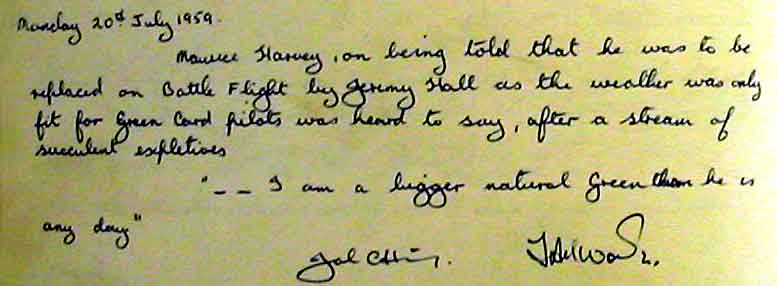 Monday 20th July 1959.
Maurice Harvey, on being told that he was to be
replaced on Battle Flight by Jeremy Hall as the weather was only
fit for Green Card pilots was heard to say, after a stream of
succulent expletives
"_ _ I am a bigger natural Green than he is
any day"